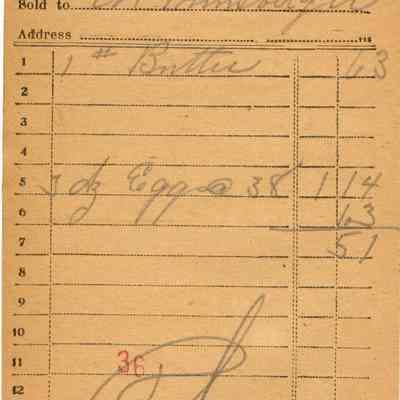 Sold to
Address
1 1 # Butter 63
2
3
4
5 3 dz Eggs @ 38 1 14
6 63
7 51
8
9
10
11 36
12